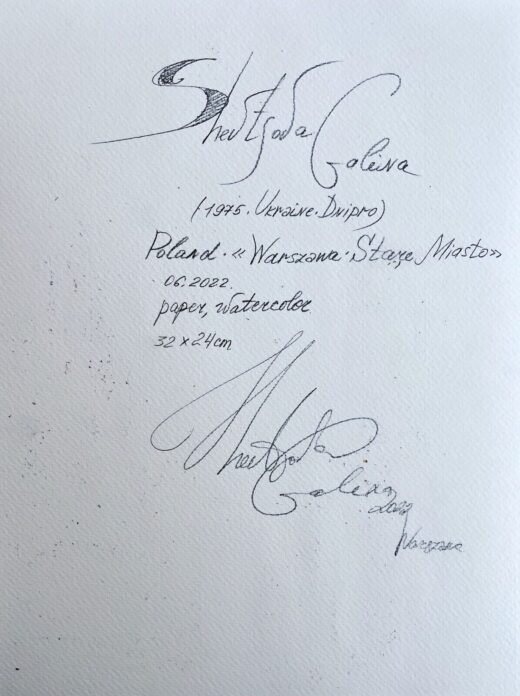 Shevtsova Galina
(1975. Ukraine. Dnipro)
Poland. «Warszawa. Stare Miasto»
06.2022.
paper, watercolor
32 x 24cm
Shevtsova
Galina
2022
Warszawa